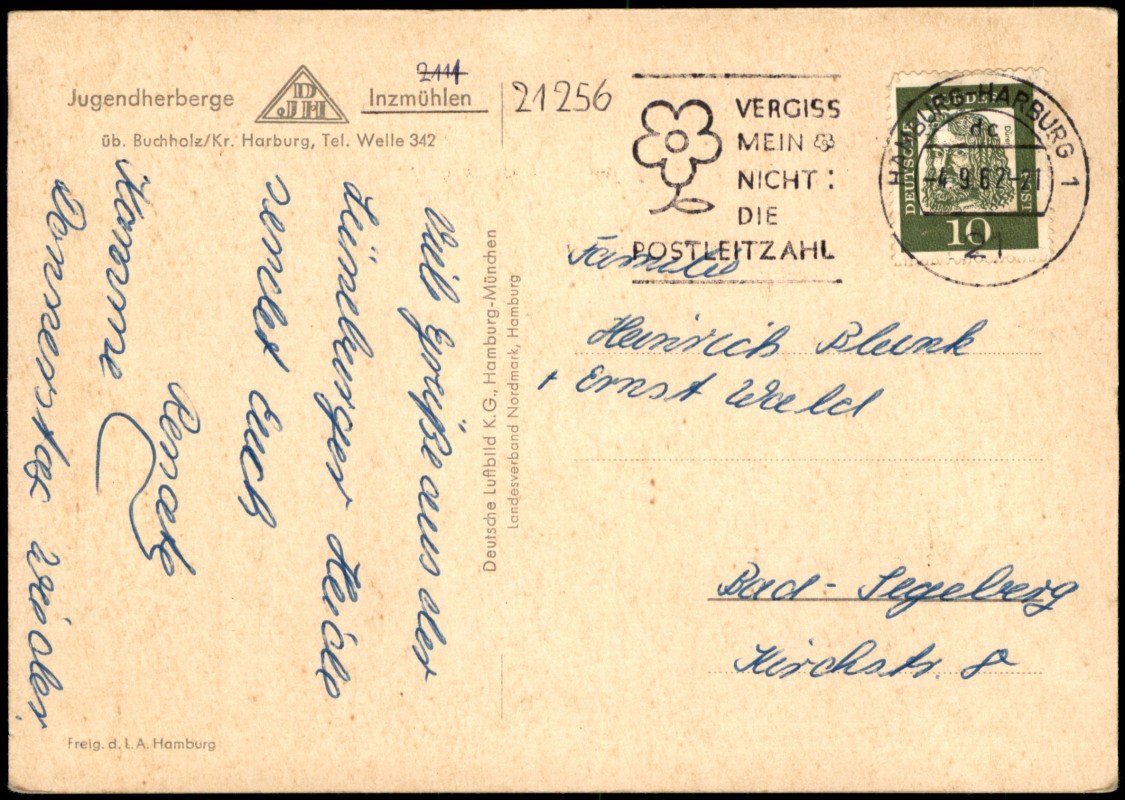 Jugendherberge
DJH
2111
Inzmühlen
21256
üb. Buchholz/Kr. Harburg, Tel. Welle 342
VERGISS
MEIN
NICHT:
DIE
POSTLEITZAHL
HAMBURG-HARBURG 1
dc
-4.9.62-11
21
DEUTSCHE BUNDESPOST
10
Viele Grüße aus der
Lüneburger Heide
sendet Euch
Renate
Komme
Donnerstag wieder.
Deutsche Luftbild K.G., Hamburg-München
Landesverband Nordmark, Hamburg
Familie
Heinrich Blunk
+ Ernst Wald
Bad-Segeberg
Kirchstr. 8
Freig. d. L.A. Hamburg